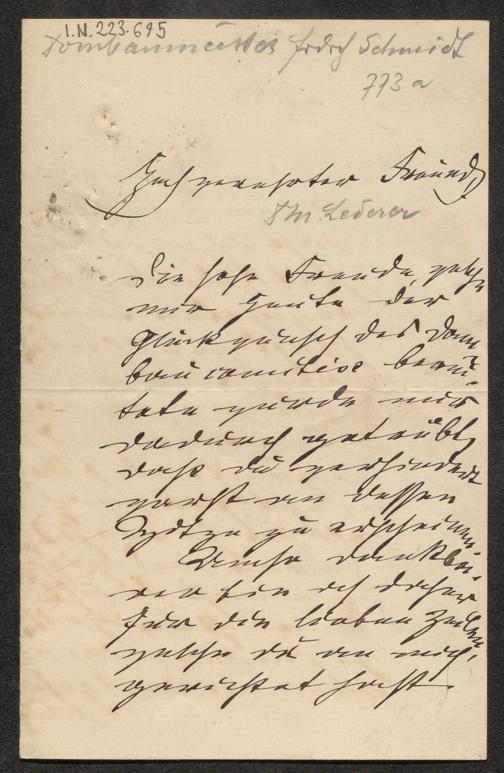 I.N. 223.695
Dombaumeister Frdrch Schmidt
773 a
Hochverehrter Freund
Th. Lederer
Die hohe Freude, welche
mir heute der
Glückwunsch des Dom
baucomites berei-
tete wurde mir
dadurch getrübt,
daß du verhindert
warst an dessen
Spitze zu erscheinen.
Umso dankba-
rer bin ich daher
für die lieben Zeilen,
welche du an mich
gerichtet hast.